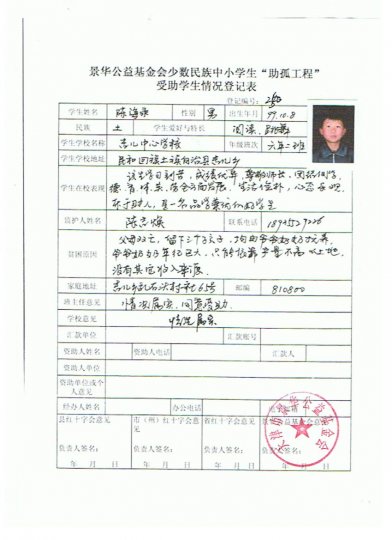 景华公益基金会少数民族中小学生“助孤工程”
受助学生情况登记表
登记编号：
学生姓名 陈海 性别 男 出生年月 99.10.8
民族 土 学生爱好与特长 阅读、跳舞
学生学校名称 中心学校 年级班次 六年二班
学生学校地址 民和回族土族自治县
学生在校表现 该生学习刻苦，成绩优异，尊敬师长，团结同学，
德、智、体、美、劳全面发展，生活俭朴，心态乐观，
乐于助人，是一名品学兼优的好学生
监护人姓名 联系电话
贫困原因 父母双亡，留下三个孩子，均由爷爷奶奶抚养，
爷爷奶奶年纪已大，只能依靠产量不高的土地，
没有其它收入来源
家庭地址 村社65号 邮编 810800
班主任意见 情况属实，同意资助
学校意见 情况属实
汇款单位 汇款账号
资助人姓名 资助人电话 汇款人
资助人单位
资助单位或个
人意见
经办人姓名 办公电话
县红十字会意见 市（州）红十字会意见 省红十字会意见
负责人签名： 负责人签名： 负责人签名： 负责人签名：
年 月 日 年 月 日 年 月 日 年 月 日
景华公益基金会